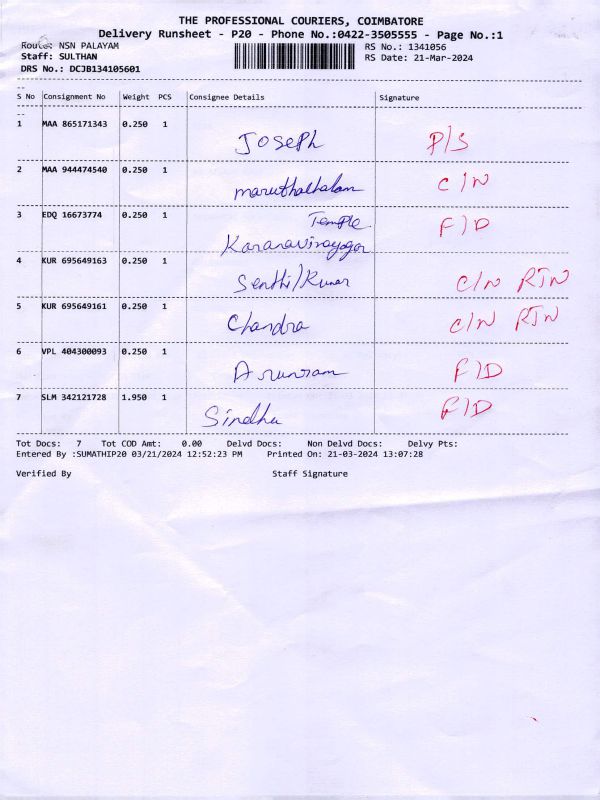 THE PROFESSIONAL COURIERS, COIMBATORE
Delivery Runsheet - P20 - Phone No.:0422-3505555 - Page No.:1
Route: NSN PALAYAM
RS No.: 1341056
Staff: SULTHAN
RS Date: 21-Mar-2024
DRS No.: DCJB134105601
S No Consignment No Weight PCS Consignee Details Signature
1 MAA 865171343 0.250 1
Joseph P/S
2 MAA 944474540 0.250 1
C/N
3 EDQ 16673774 0.250 1 Temple F/D
4 KUR 695649163 0.250 1
C/N RTN
5 KUR 695649161 0.250 1
Chandra C/N RTN
6 VPL 404300093 0.250 1
Arunram F/D
7 SLM 342121728 1.950 1
Sindhu F/D
Tot Docs: 7 Tot COD Amt: 0.00 Delvd Docs: Non Delvd Docs: Delvy Pts:
Entered By :SUMATHIP20 03/21/2024 12:52:23 PM Printed On: 21-03-2024 13:07:28
Verified By Staff Signature